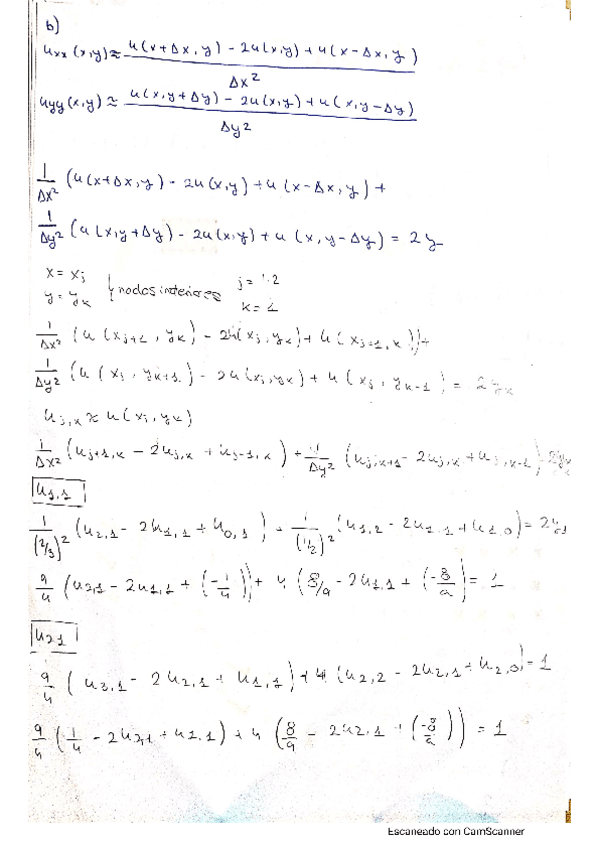 b)
u_xx (x,y) ≈ u(x+Δx, y) - 2u(x,y) + u(x-Δx, y) / Δx²
u_yy (x,y) ≈ u(x,y+Δy) - 2u(x,y) + u(x,y-Δy) / Δy²
1/Δx² (u(x+Δx,y) - 2u(x,y) + u(x-Δx,y) +
1/Δy² (u(x,y+Δy) - 2u(x,y) + u(x,y-Δy) = 2y
x = x_j } nodos interiores j = 1,2
y = y_k k = 1
1/Δx² (u(x_j+1, y_k) - 2u(x_j, y_k) + u(x_j-1, k)) +
1/Δy² (u(x_j, y_k+1) - 2u(x_j, y_k) + u(x_j, y_k-1) = 2y_k
u_j,k ≈ u(x_j, y_k)
1/Δx² (u_j+1,k - 2u_j,k + u_j-1,k) + 1/Δy² (u_j,k+1 - 2u_j,k + u_j,k-1) = 2y_k
u_1,1
1/(2/3)² (u_2,1 - 2u_1,1 + u_0,1) + 1/(1/2)² (u_1,2 - 2u_1,1 + u_1,0) = 2y_1
9/4 (u_2,1 - 2u_1,1 + (-1/4)) + 4 (8/9 - 2u_1,1 + (-8/9) = 1
u_21
9/4 (u_3,1 - 2u_2,1 + u_1,1) + 4 (u_2,2 - 2u_2,1 + u_2,0) = 1
9/4 (1/4 - 2u_2,1 + u_1,1) + 4 (8/9 - 2u_2,1 + (-8/9)) = 1
Escaneado con CamScanner